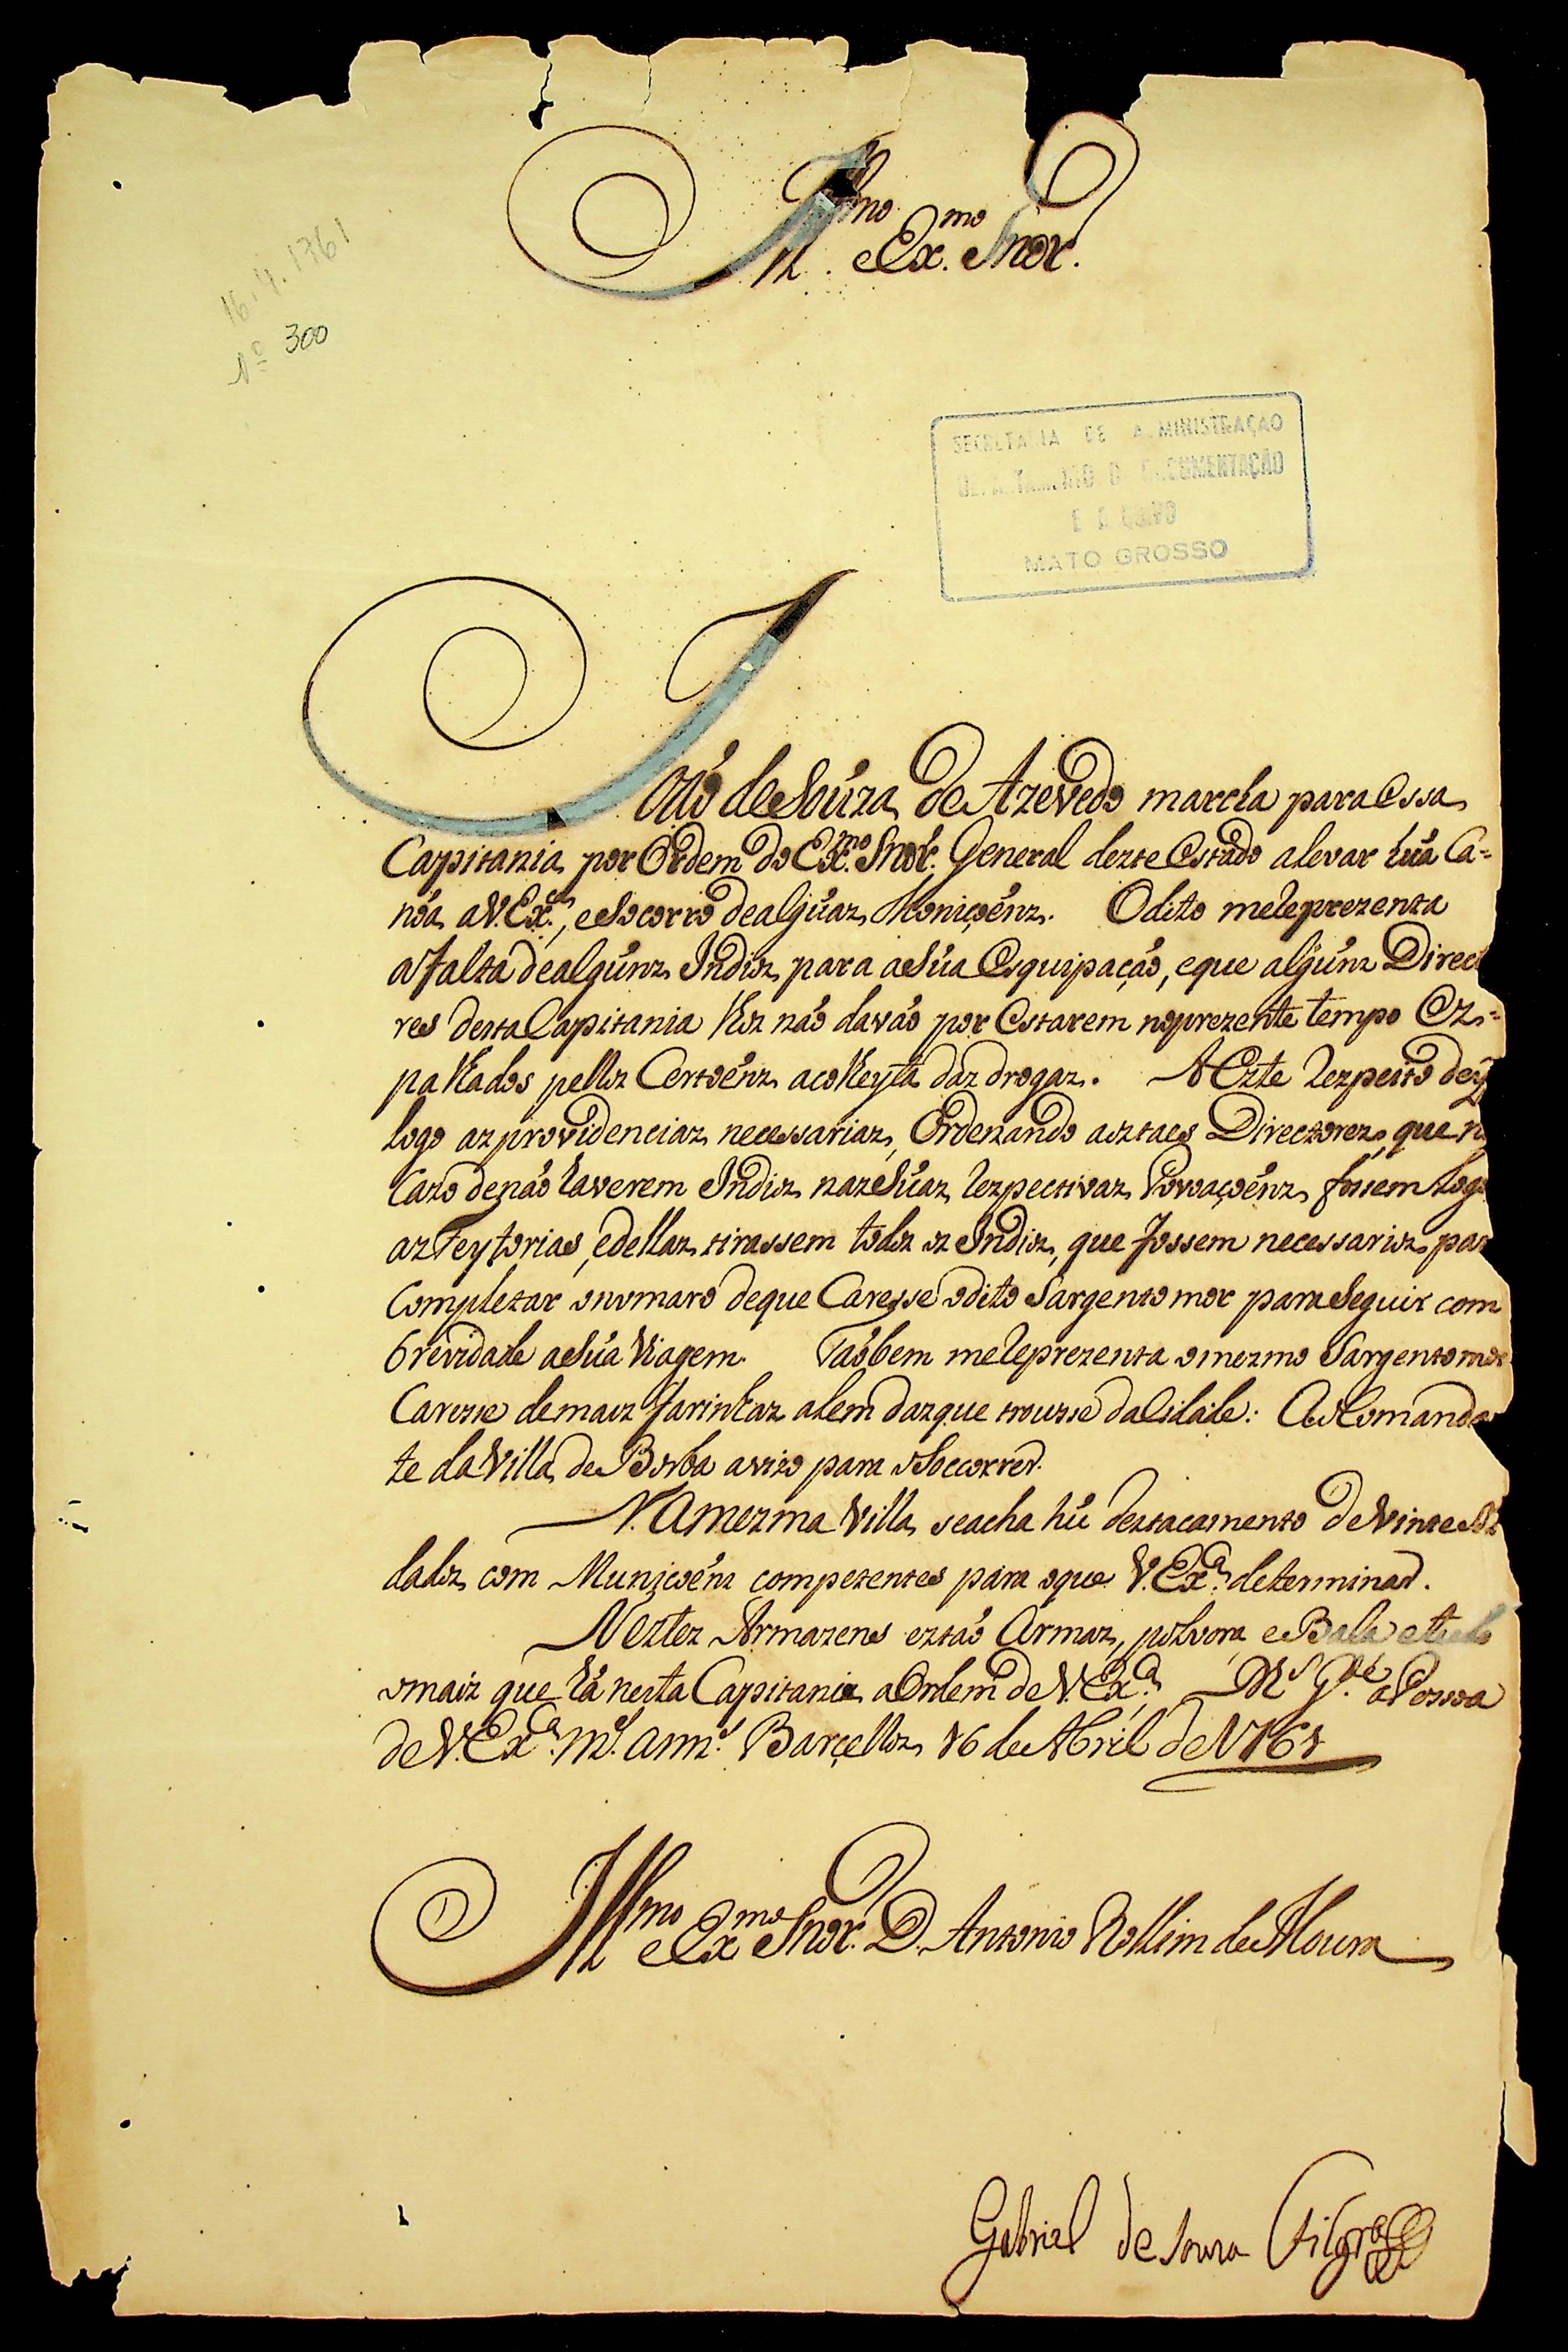 Ill.mo e Ex.mo Snor.
16.4.1761
Nº 300
SECRETARIA DE ADMINISTRAÇÃO
DEPARTAMENTO DE DOCUMENTAÇÃO
E ARQUIVO
MATO GROSSO
Joáo de Soúza de Azevedo marcha para essa
Capitania por Ordem do Ex.mo Snor. General dezte Estado a levar húa Ca=
nóa a V. Ex.a, e Socorro de algúaz Moniçoénz. O dito me reprezenta
a falta de algúnz Indioz para a Súa Esquipaçáo, e que algúnz Direct
res desta Capitania lhoz náo daváo por Estarem no prezente tempo Ez=
palhados pelloz Certoénz a colheyta daz drogaz. A Ezte rezpeito dey
logo az providenciaz necessariaz, Ordenando aoz taes Directorez, que n
cazo de náo haverem Indioz naz Súaz rezpectivaz Povoaçoénz, fossem logo
az Feytorias, e dellaz tirassem todoz oz Indioz, que fossem necessarioz par
Completar o numaro de que Caresse o dito Sargento mor para Seguir com
brevidade a Súa Viagem. Taóbem me reprezenta o mezmo Sargento mor
Caresse de maiz farinhaz alem daz que trousse da Cidade: Ao Comandan
te da Villa de Borba avizo para o Soccorrer.
N. A mezma Villa se acha hú deztacamento de Vinte Sol
dadoz com Municoénz competentes para o que V. Ex.a determinar.
Neztez Armazens eztáo Armaz, polvora e Bala e tudo
o maiz que há nesta Capitania a Ordem de V. Ex.a D.s G.de a Pessoa
de V. Ex.a m.s ann.s Barçelloz 16 de Abril de 1761
Ill.mo e Ex.mo Snor. D. Antonio Rollim de Moura
Gabriel de Souza Filgr.as